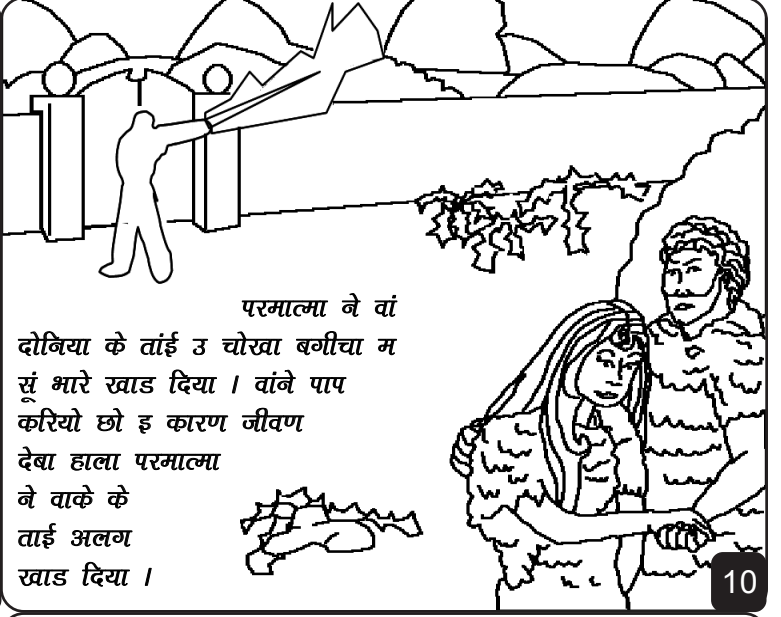 परमात्मा ने वां
दोनिया के तांई उ चोखा बगीचा म
सूं भारे खाड दिया । वांने पाप
करियो छो इ कारण जीवण
देबा हाला परमात्मा
ने वाके के
ताई अलग
खाड दिया ।
10